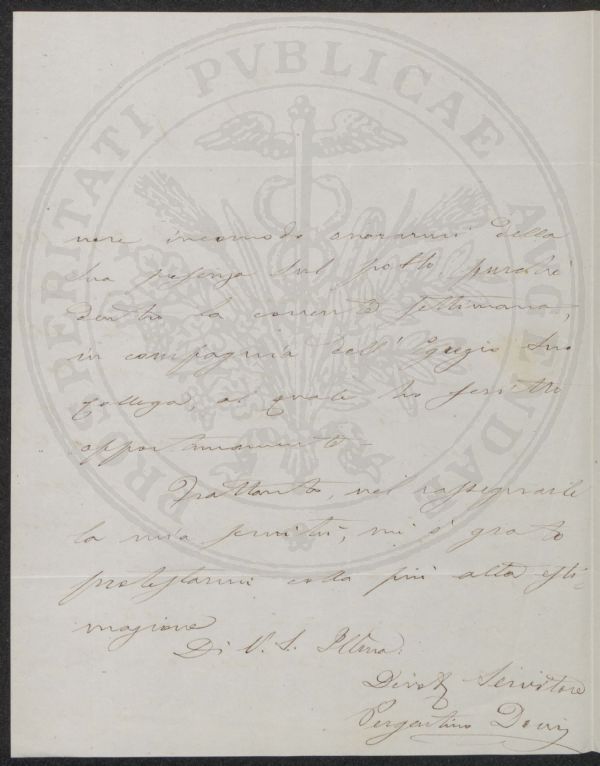 PROSPERITATI PVBLICAE AVGENDAE
nore incomodo onorarmi della
Sua presenza sul posto, purchè
dentro la corrente settimana,
in compagnia dell'Egregio Suo
Collega, al quale ho scritto
opportunamente -
Frattanto, nel rassegnarle
la mia servitù, mi è grato
protestarmi colla più alta esti-
mazione
Di V. S. Illma.
Devot Servitore
Pergentino